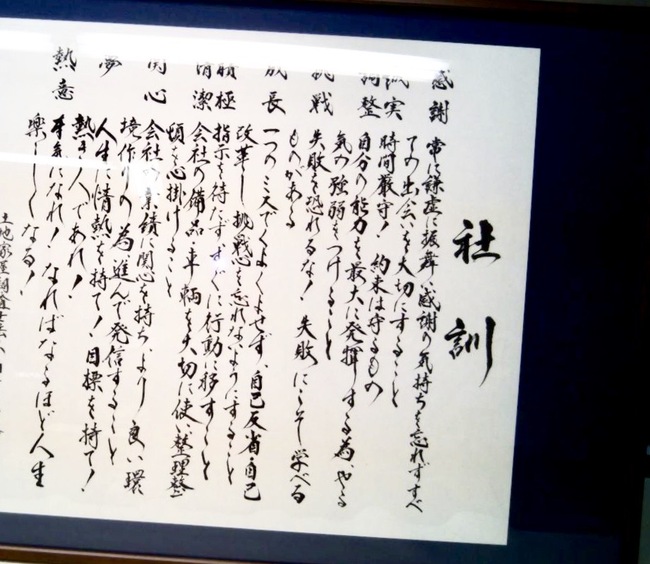 社訓
感謝 常に謙虚に振舞い感謝の気持ちを忘れずすべ
ての出会いを大切にすること
誠実 時間厳守!約束は守るもの
調整 自分の能力を最大に発揮する為、やる
気の強弱をつけること
挑戦 失敗を恐れるな!失敗にこそ学べる
ものがある
成長 一つのミスでくよくよせず、自己反省自己
改革し、挑戦心を忘れないようにすること
積極 指示を待たずすぐに行動に移すこと
清潔 会社の備品・車輌を大切に使い整理整
頓を心掛けること
関心 会社の業績に関心を持ち、より良い環
境作りの為進んで発信すること
夢 人生に情熱を持て!目標を持て!
熱意 熱き人であれ!
本気になれ!なればなるほど人生
楽しくなる!
土地家屋調査士法人